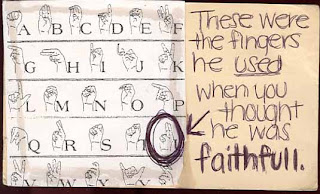 A B C D E F
G H I J K
L M N O P
Q R S
These were
the fingers
he used
when you
thought
he was
faithfull.